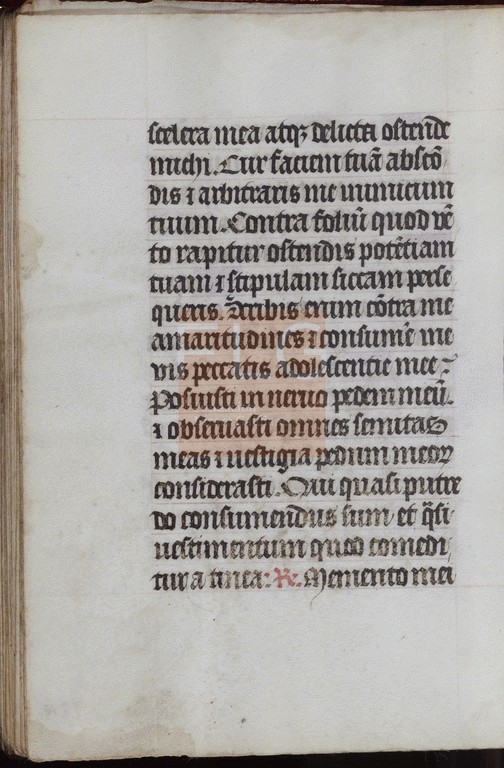 scelera mea atqꝫ delicta ostende
michi. Cur faciem tuā abscō
dis ⁊ arbitraris me inimicum
tuum. Contra foliū quod vē
to rapitur ostendis potētiam
tuam ⁊ stipulam siccam perse
queris. Scribis enim cōtra me
amaritudines ⁊ consumē me
vis peccatis adolescentie mee ⁊
Posuisti in neruo pedem meū.
⁊ obseruasti omnes semitas
meas ⁊ uestigia pedum meoꝝ
considerasti. Qui quasi putre
do consumendus sum et q̄si
uestimentum quod comedi
tur a tinea: ℟. Memento mei